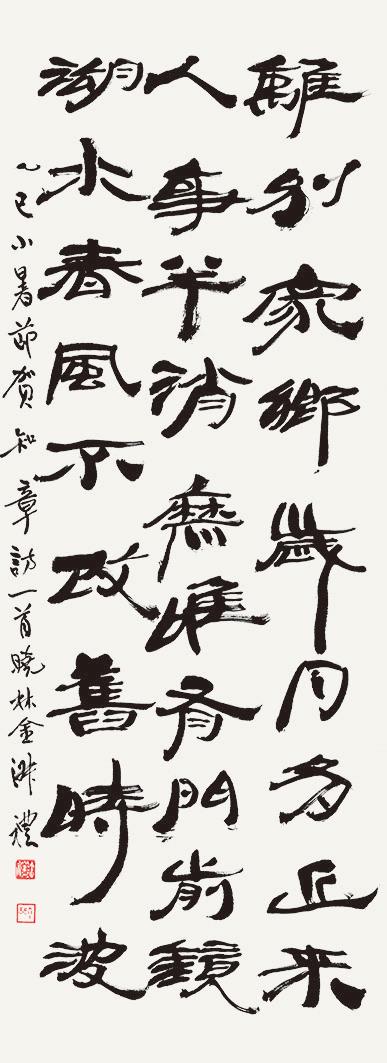 離別家鄉歲月多近来
人事半消磨惟有門前鏡
湖水春風不改舊時波
乙巳小暑節賀知章詩一首曉林金